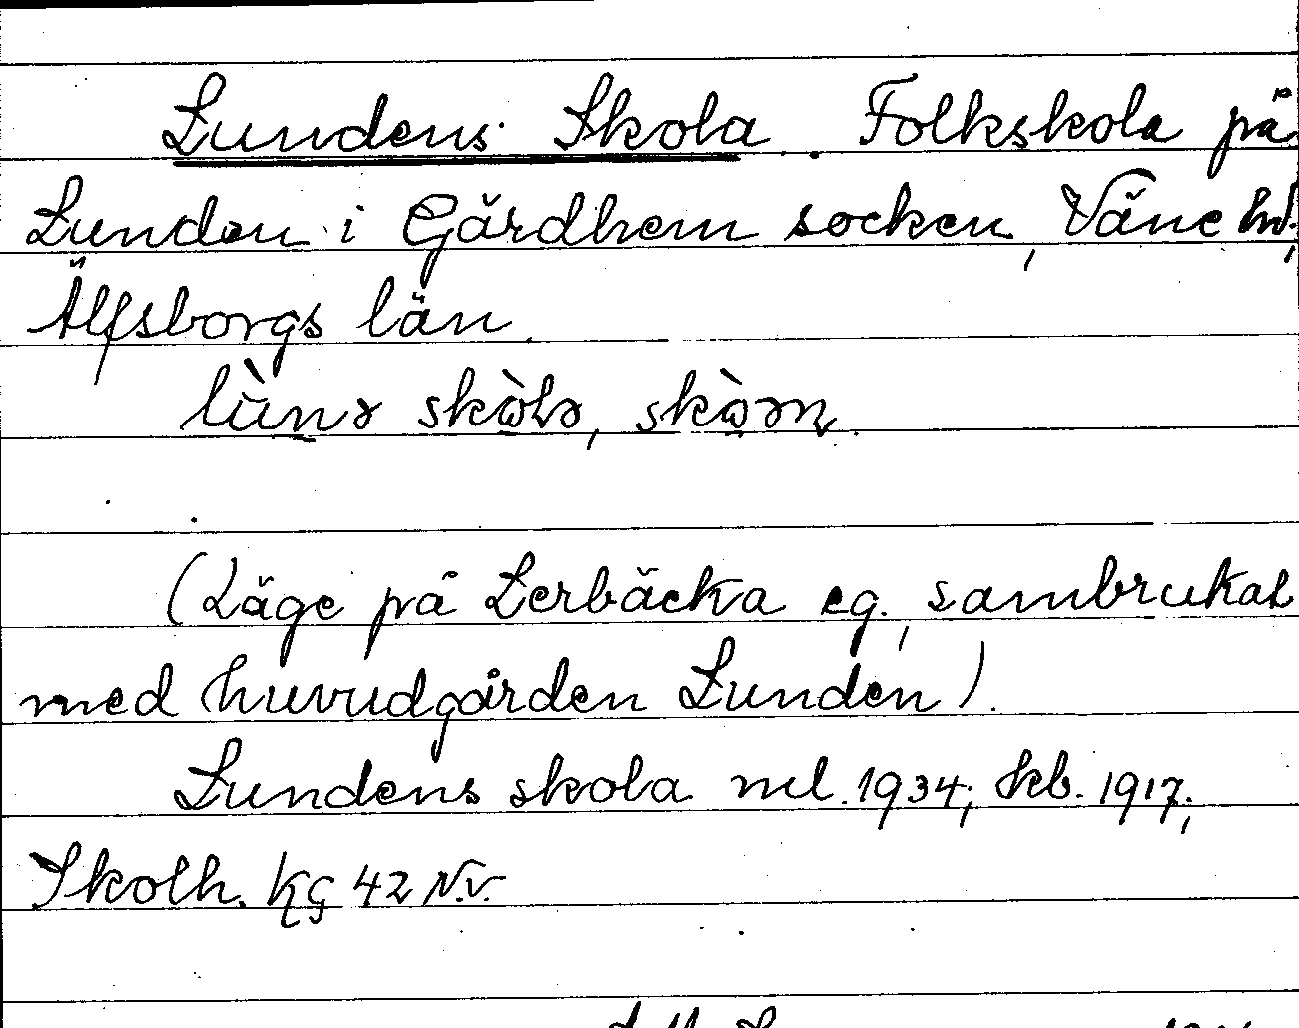 Lundens Skola. Folkskola på
Lunden i Gärdhem socken, Väne hd,
Älfsborgs län.
lùnə skòlə, skòən.
(Läge på Lerbäcka eg., sambrukat
med huvudgården Lunden).
Lundens skola ml. 1934; kb. 1917;
Skolh. kç 42 N.V.